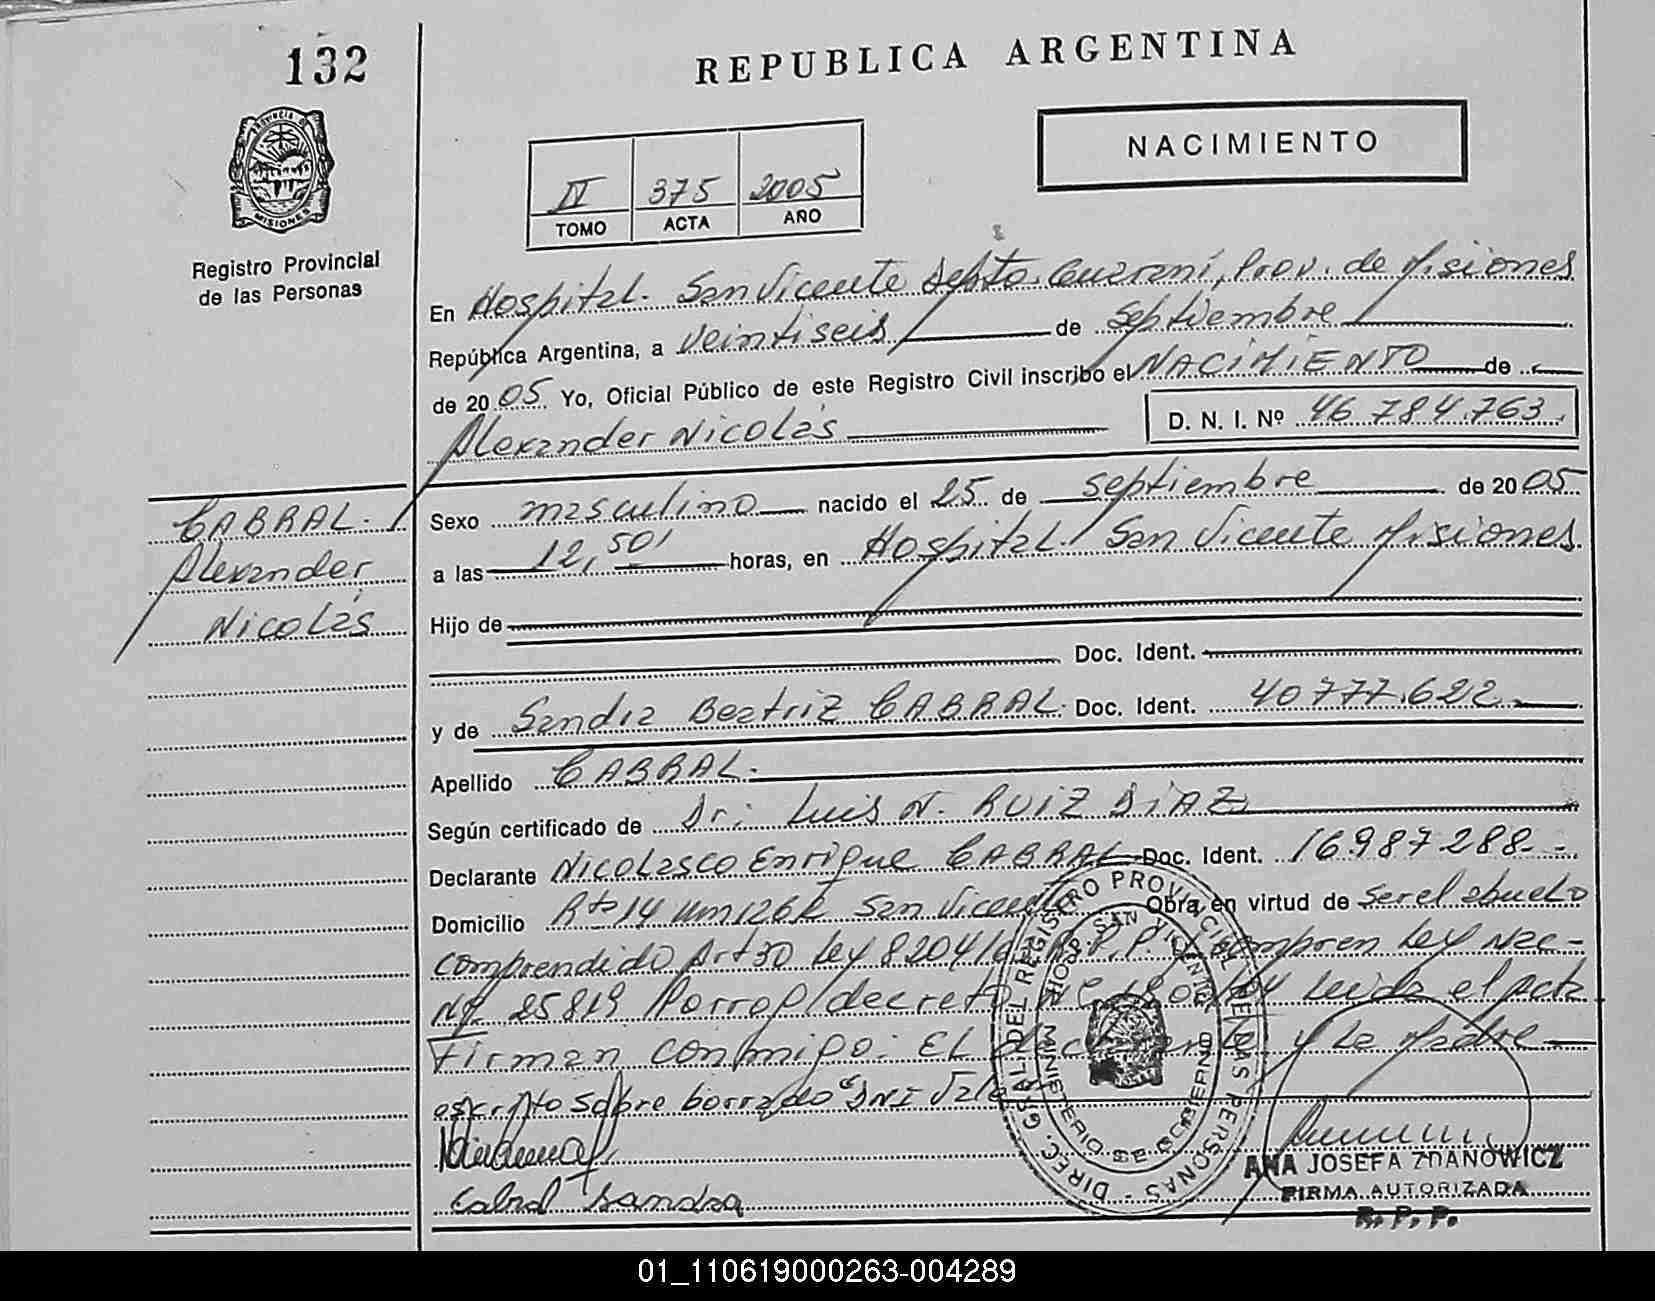 132
REPUBLICA ARGENTINA
NACIMIENTO
II 375 2005
TOMO ACTA AÑO
PROVINCIA DE
MISIONES
Registro Provincial
de las Personas
En Hospital. San Vicente Depto. Guaraní, Prov. de Misiones
República Argentina, a veintiseis de Septiembre
de 2005 Yo, Oficial Público de este Registro Civil inscribo el NACIMIENTO de
Alexander Nicolás D. N. I. Nº 46.784.763.
CABRAL.
Alexander
Nicolás
Sexo masculino nacido el 25 de Septiembre de 2005
a las 12,50' horas, en Hospital San Vicente Misiones.
Hijo de
Doc. Ident.
y de Sandra Beatriz CABRAL. Doc. Ident. 40777.622.
Apellido CABRAL.
Según certificado de Dr: Luis N. RUIZ DIAZ
Declarante Nicolasco Enrique CABRAL Doc. Ident. 16987288.-
Domicilio Rta 14 km 1262 San Vicente Obra en virtud de ser el abuelo
comprendido Art 30 Ley 8204/ R.P.P. Ley Nac-
Nº 25819 Prorrog/decreto Leida el acta
Firman conmigo: EL y La Madre
escrito sobre borrado "DNI Vale
Cabral Sandra
DIREC. GRAL DEL REGISTRO PROVINCIAL DE LAS PERSONAS
HOSP. SAN VICENTE
MINISTERIO DE GOBIERNO
ANA JOSEFA ZDANOWICZ
FIRMA AUTORIZADA
R. P. P.
01_110619000263-004289